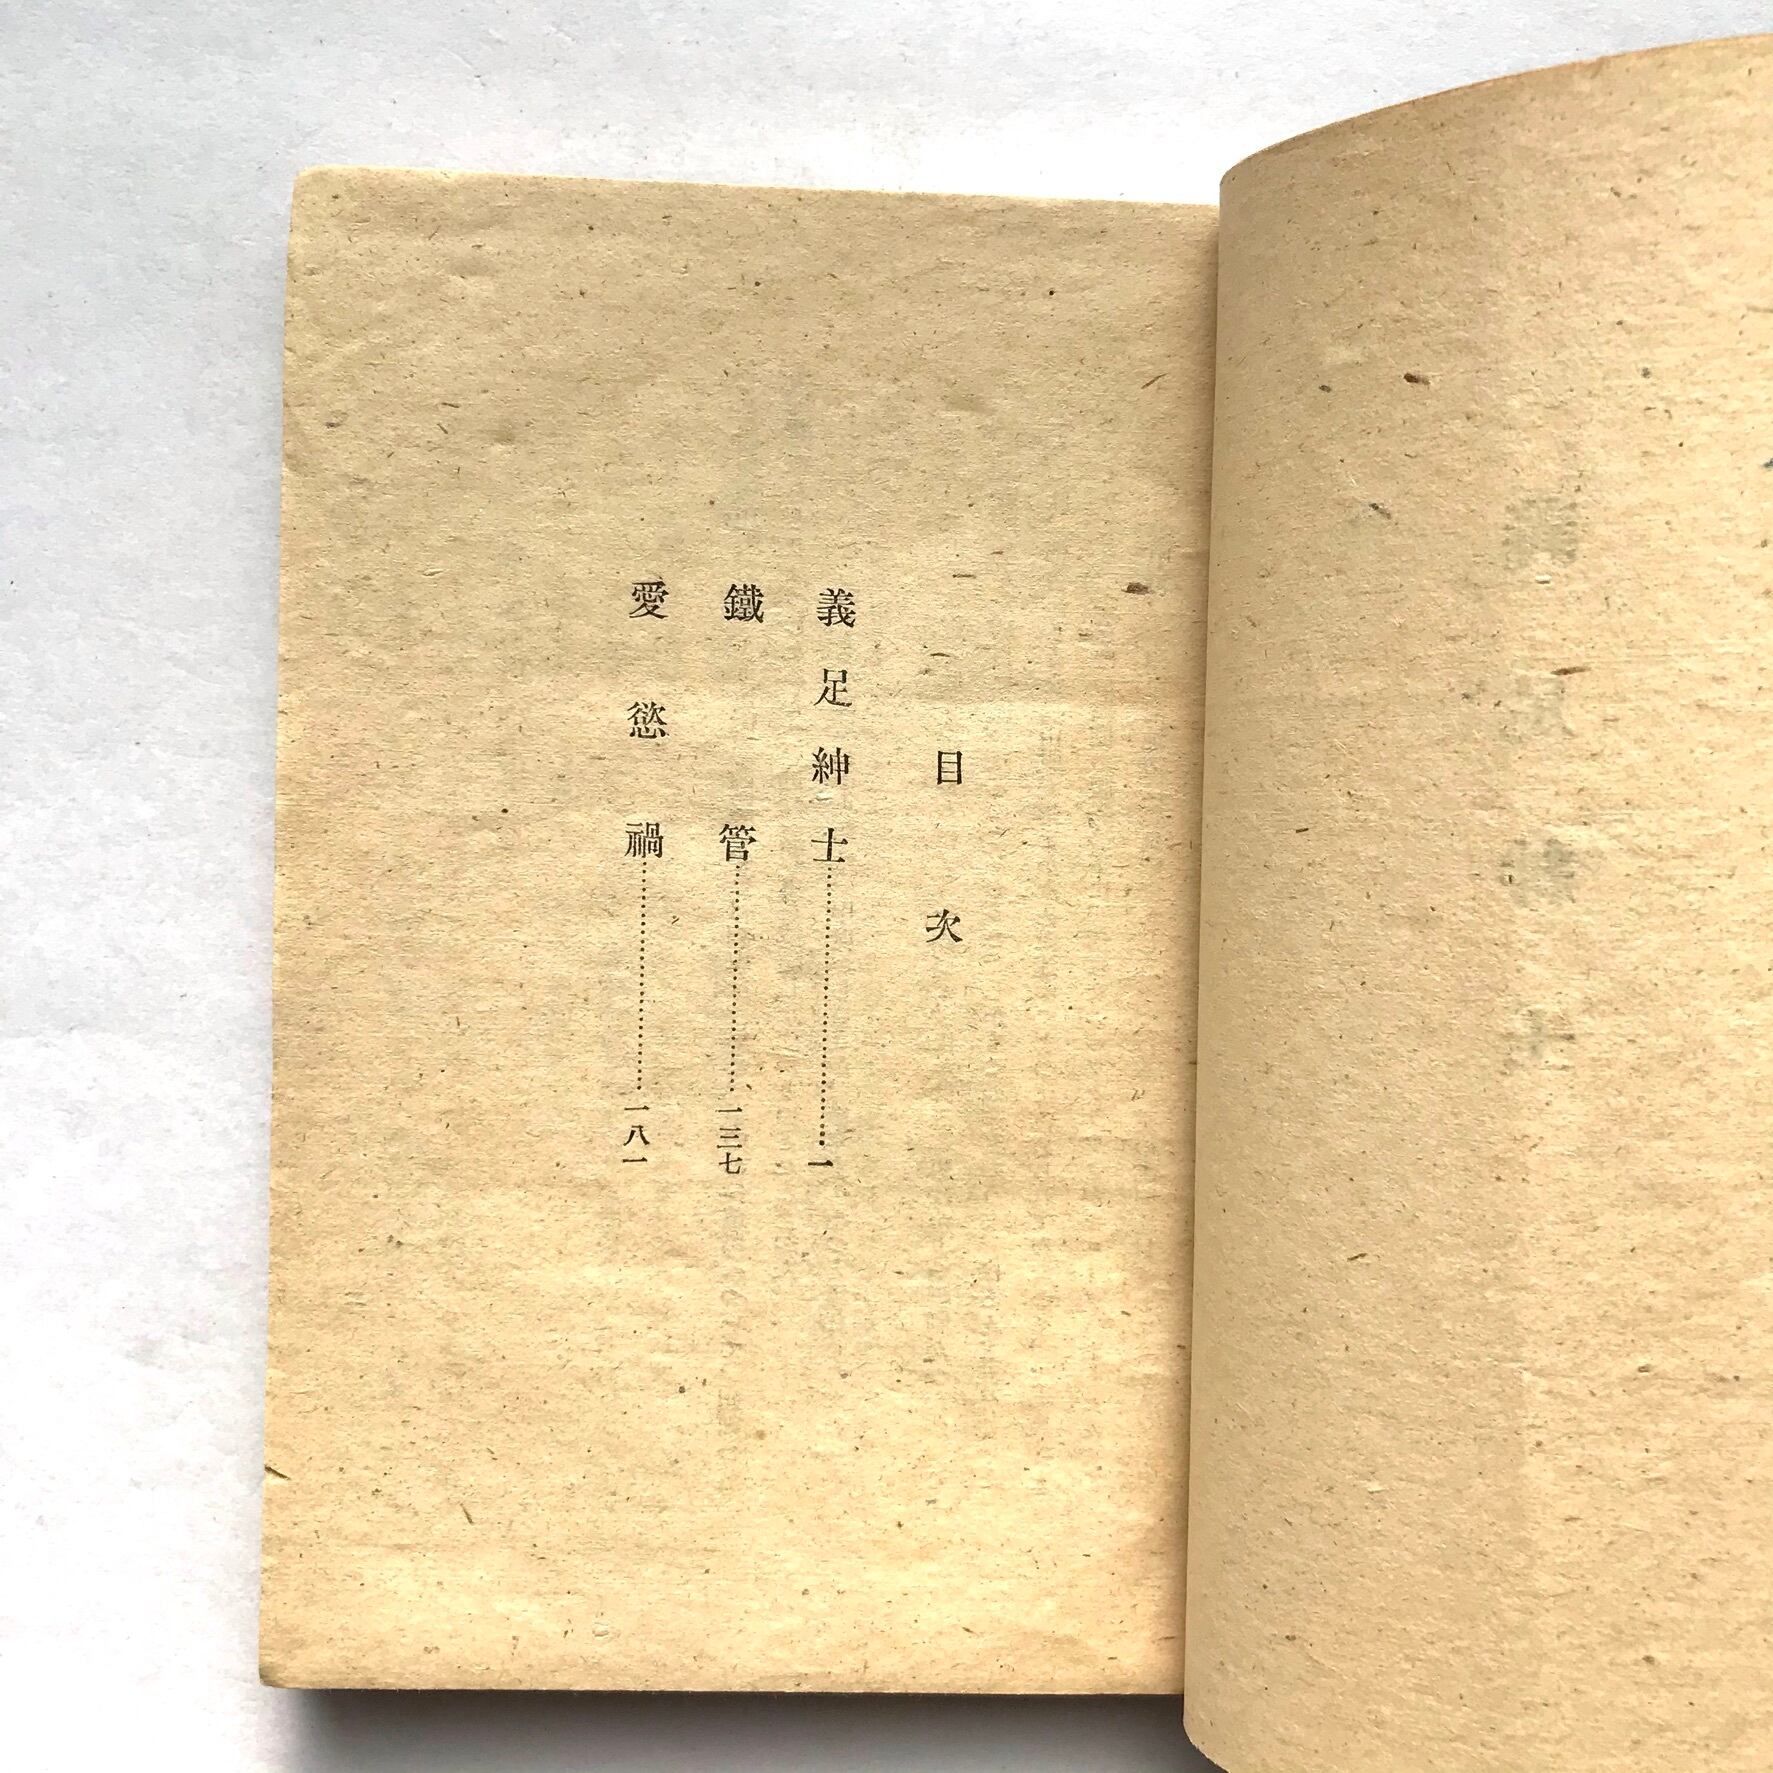 目次
義足紳士……………………一
鐵管……………………一三七
愛慾禍……………………一八一